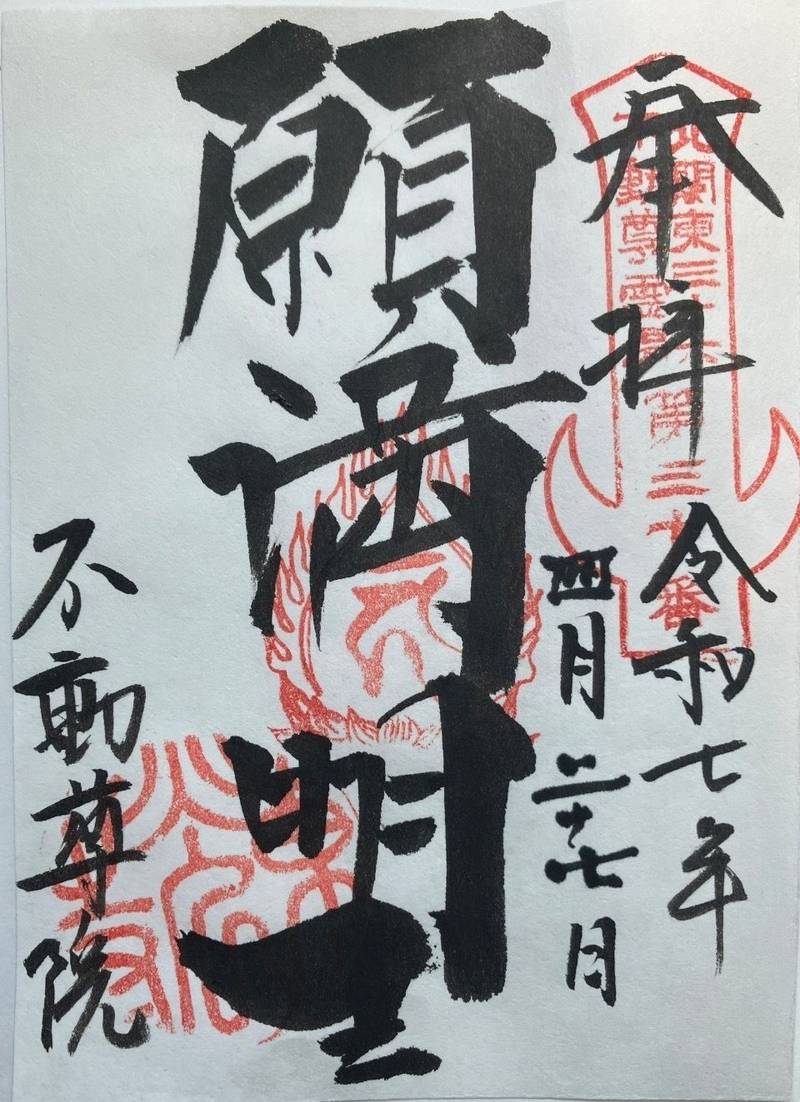 奉拝
北關東三十六
不動尊霊場
第三十番
令和七年
四月二十七日
願満明王
不動尊院